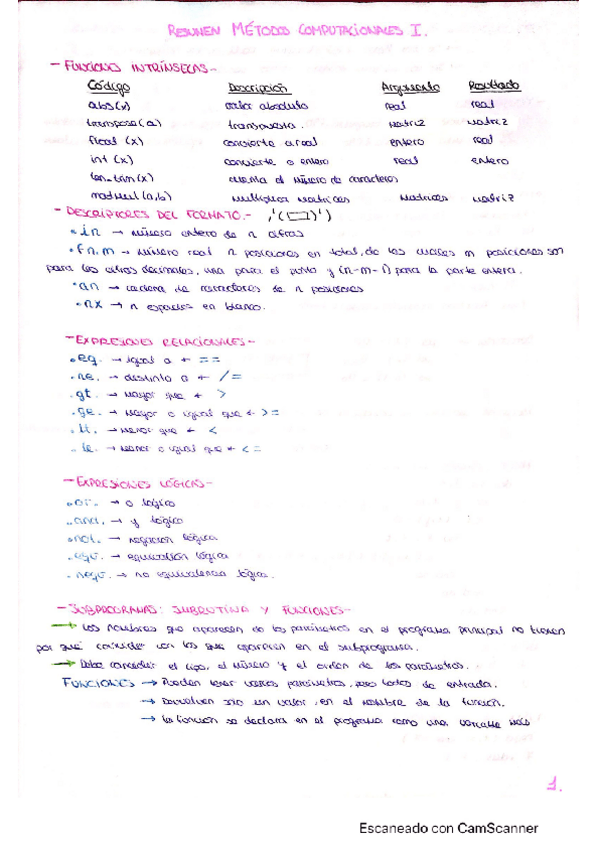 RESUMEN MÉTODOS COMPUTACIONALES I.
- FUNCIONES INTRÍNSECAS -
Código Descripción Argumento Resultado
abs(x) valor absoluto real real
transpose(a) transpuesta. matriz matriz
float (x) convierte a real entero real
int (x) convierte a entero real entero
len_trim(x) cuenta el número de caracteres
matmul(a,b) multiplica matrices matrices matriz
- DESCRIPTORES DEL FORMATO - ,'( )')
• in → número entero de n cifras
• fn.m → número real n posiciones en total, de las cuales m posiciones son
para las cifras decimales, una para el punto y (n-m-1) para la parte entera.
• an → cadena de caracteres de n posiciones
• nx → n espacios en blanco.
- EXPRESIONES RELACIONALES -
.eq. → igual a ==
.ne. → distinto a /=
.gt. → mayor que >
.ge. → mayor o igual que >=
.lt. → menor que <
.le. → menor o igual que <=
- EXPRESIONES LÓGICAS -
.or. → o lógico
.and. → y lógico
.not. → negación lógica
.eqv. → equivalencia lógica
.neqv. → no equivalencia lógica.
- SUBPROGRAMAS: SUBRUTINA Y FUNCIONES -
→ Los nombres que aparecen de los parámetros en el programa principal no tienen
por qué coincidir con los que aparecen en el subprograma.
→ Debe coincidir el tipo, el número y el orden de los parámetros.
FUNCIONES → Pueden tener varios parámetros, pero todos de entrada.
→ Devuelven sólo un valor, en el nombre de la función.
→ La función se declara en el programa como una variable más
1.
Escaneado con CamScanner